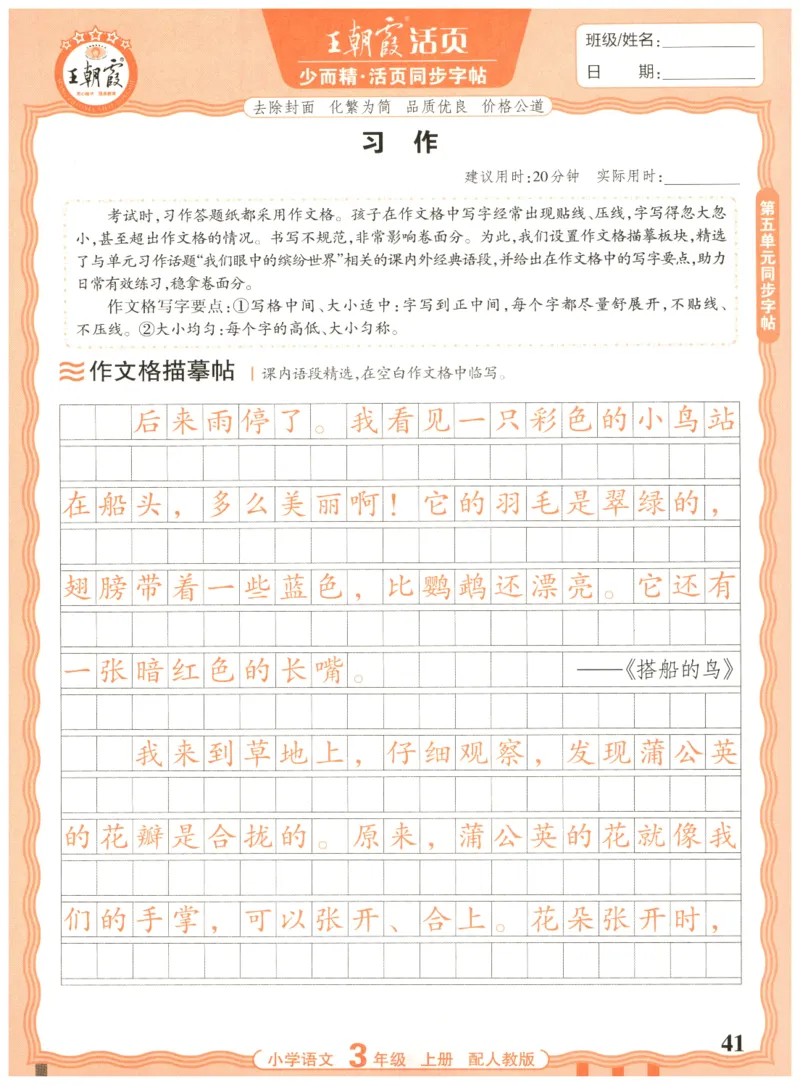 王朝霞
王朝霞活页
少而精·活页同步字帖
班级/姓名:
日 期:
去除封面 化繁为简 品质优良 价格公道
习 作
建议用时:20分钟 实际用时:
考试时,习作答题纸都采用作文格。孩子在作文格中写字经常出现贴线、压线,字写得忽大忽
小,甚至超出作文格的情况。书写不规范,非常影响卷面分。为此,我们设置作文格描摹板块,精选
了与单元习作话题“我们眼中的缤纷世界”相关的课内外经典语段,并给出在作文格中的写字要点,助力
日常有效练习,稳拿卷面分。
作文格写字要点:①写格中间、大小适中:字写到正中间,每个字都尽量舒展开,不贴线、
不压线。②大小均匀:每个字的高低、大小匀称。
第五单元同步字帖
作文格描摹帖 | 课内语段精选,在空白作文格中临写。
后来雨停了。我看见一只彩色的小鸟站
在船头,多么美丽啊!它的羽毛是翠绿的,
翅膀带着一些蓝色,比鹦鹉还漂亮。它还有
一张暗红色的长嘴。 ——《搭船的鸟》
我来到草地上,仔细观察,发现蒲公英
的花瓣是合拢的。原来,蒲公英的花就像我
们的手掌,可以张开、合上。花朵张开时,
41
小学语文 3年级 上册 配人教版